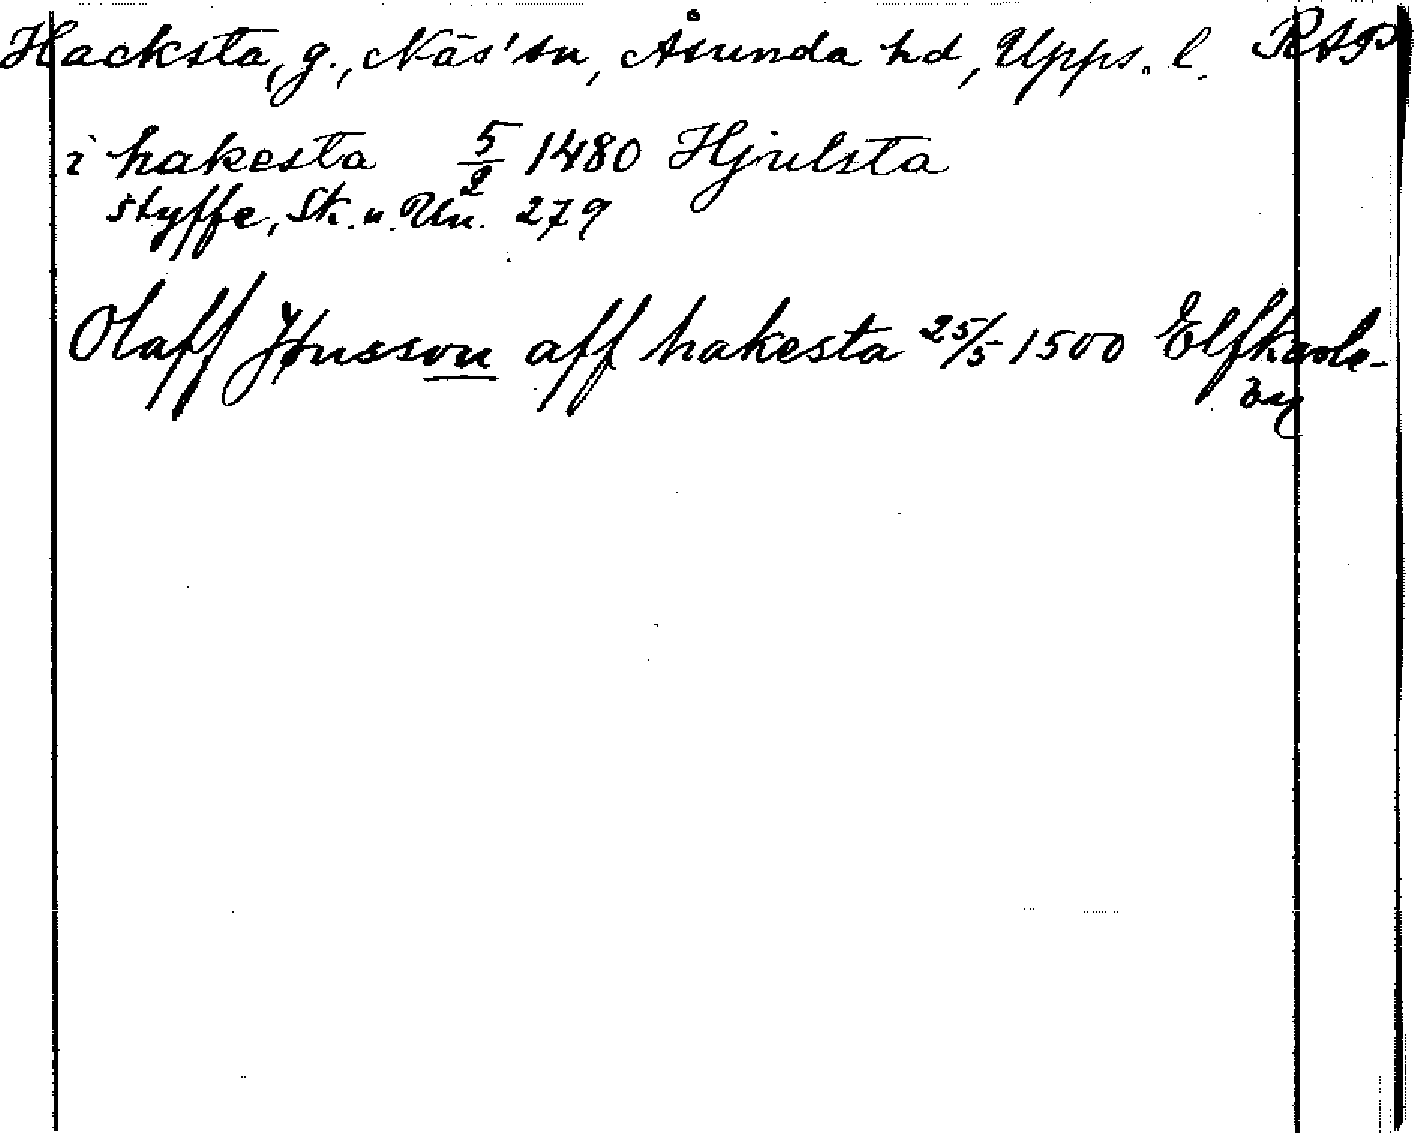 Hacksta, g., Näs' sn, Åsunda hd, Upps. l. RAP
i hakesta 5/2 1480 Hjulsta
Styffe, Sk. u. Un. 279
Olaff Jønsson aff hakesta 25/5 1500 Elfkarle-
by